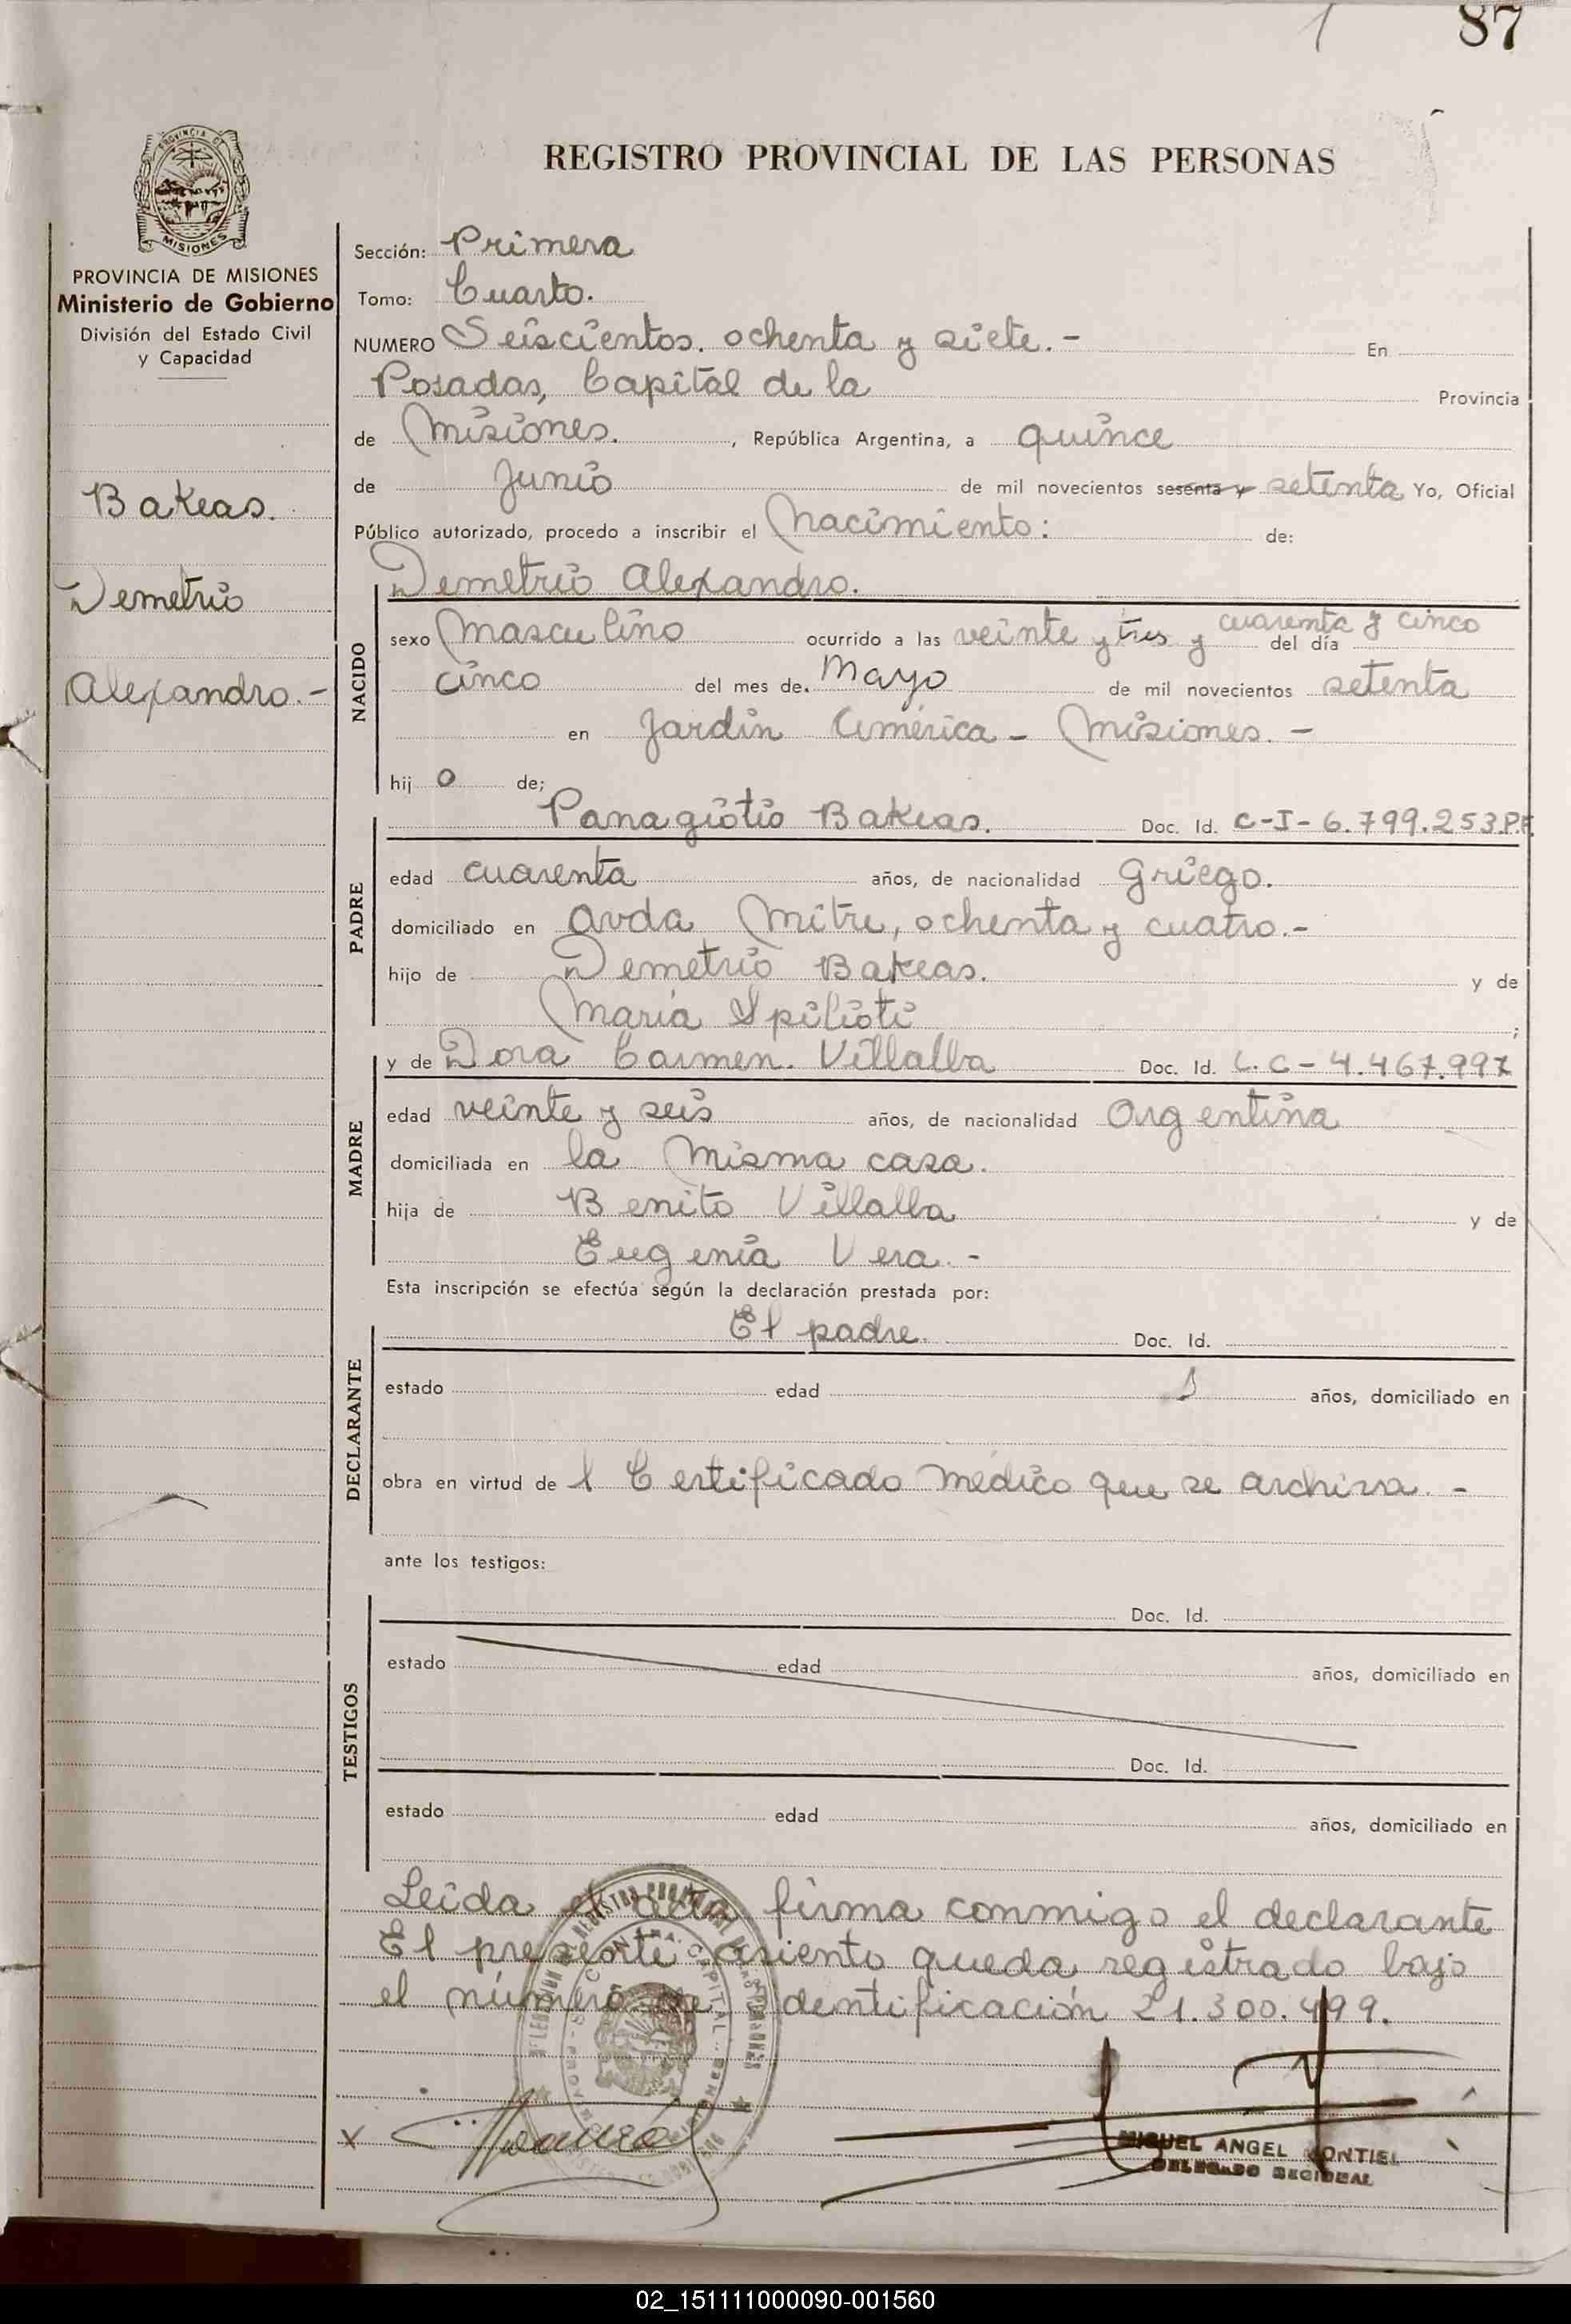 1 87
REGISTRO PROVINCIAL DE LAS PERSONAS
PROVINCIA DE
MISIONES
PROVINCIA DE MISIONES
Ministerio de Gobierno
División del Estado Civil
y Capacidad
Bakeas.
Demetrio
Alexandro.-
Sección: Primera
Tomo: Cuarto.
NUMERO Seiscientos. ochenta y siete.- En
Posadas, Capital de la Provincia
de Misiones. , República Argentina, a quince
de Junio de mil novecientos sesenta y setenta Yo, Oficial
Público autorizado, procedo a inscribir el Nacimiento: de:
Demetrio Alexandro.
NACIDO
sexo Masculino ocurrido a las veinte y tres y cuarenta y cinco del día
cinco del mes de. Mayo de mil novecientos setenta
en Jardín América - Misiones. -
hij o de;
PADRE
Panagiotio Bakeas. Doc. Id. C-I-6.799.253.P.F.
edad cuarenta años, de nacionalidad Griego.
domiciliado en avda Mitre, ochenta y cuatro.-
hijo de Demetrio Bakeas. y de
María Spilioti ;
MADRE
y de Dora Carmen. Villalba Doc. Id. L.C-4.467.997
edad veinte y seis años, de nacionalidad Argentina
domiciliada en la misma casa.
hija de Benito Villalba y de
Eugenia Vera. -
Esta inscripción se efectúa según la declaración prestada por:
DECLARANTE
El padre. Doc. Id.
estado edad años, domiciliado en
obra en virtud de l Certificado médico que se archiva. -
ante los testigos:
TESTIGOS
Doc. Id.
estado edad años, domiciliado en
Doc. Id.
estado edad años, domiciliado en
Leida el acta firma conmigo el declarante
El presente asiento queda registrado bajo
el número de identificación 21.300.499.
x
MIGUEL ANGEL MONTIEL
DELEGADO REGIONAL
02_151111000090-001560